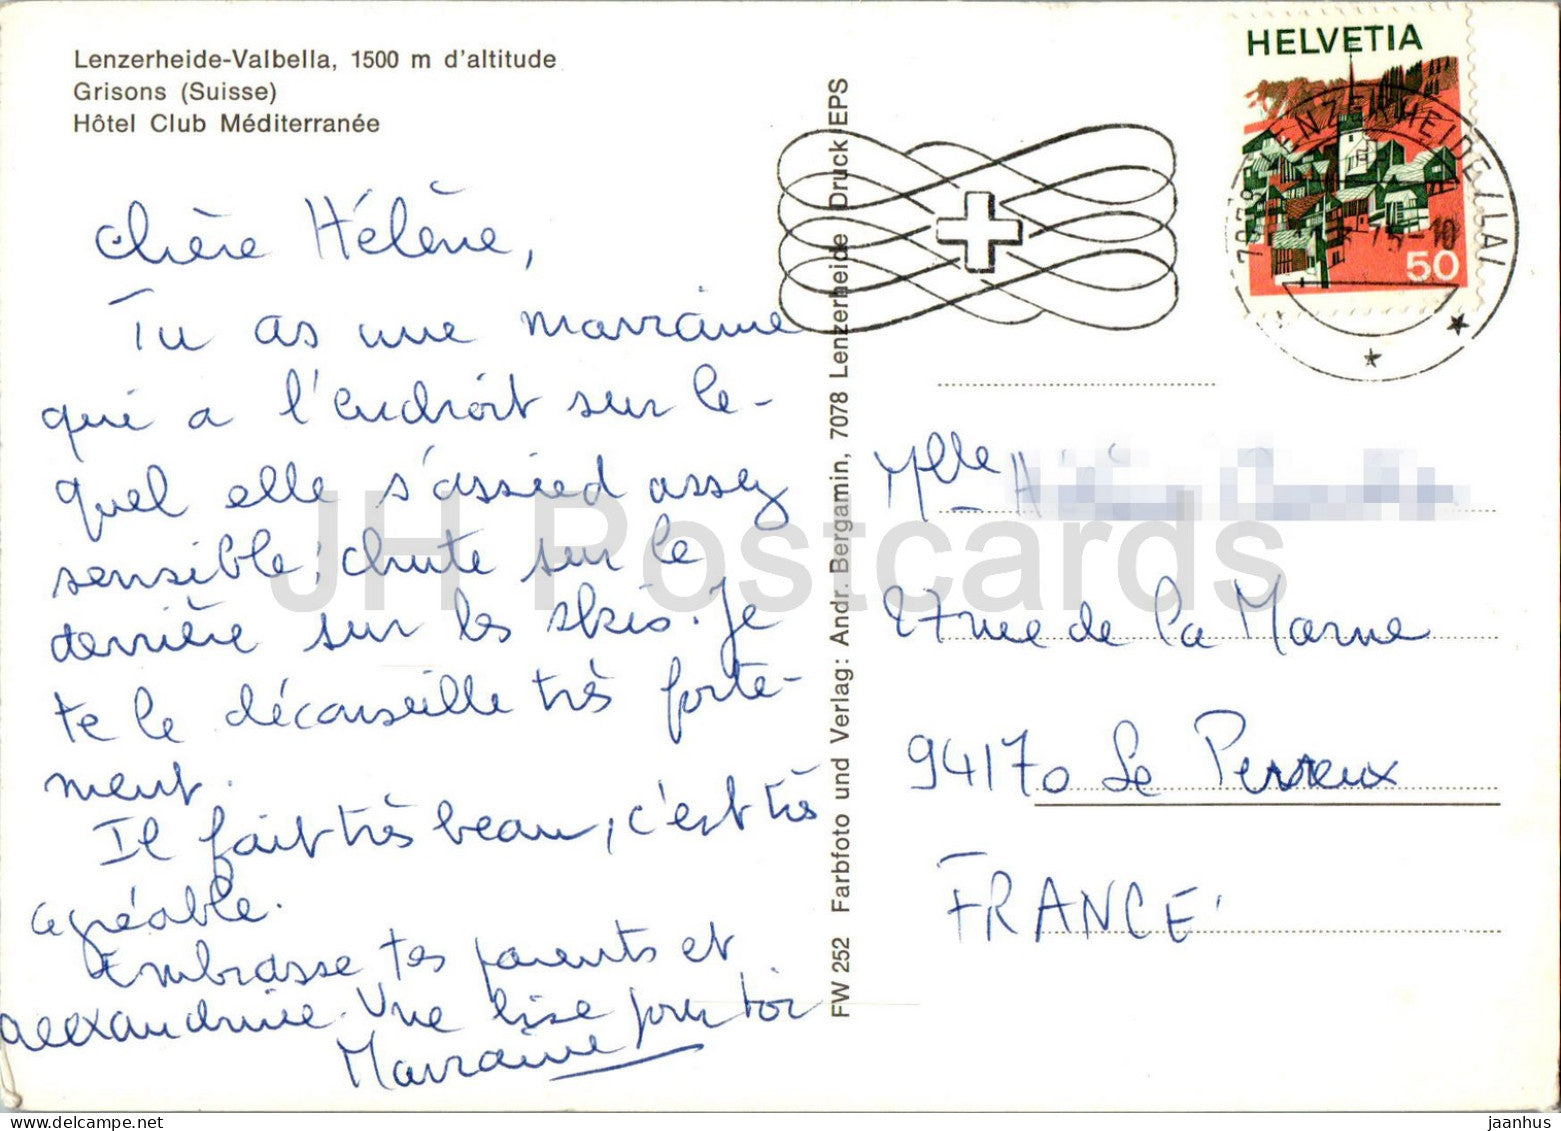 Lenzerheide-Valbella, 1500 m d'altitude
Grisons (Suisse)
Hôtel Club Méditerranée
Chère Hélène,
Tu as une marraine
qui a l'endroit sur le-
quel elle s'assied assez
sensible; chute sur le
derrière sur les skis. Je
te le déconseille très forte-
ment.
Il fait très beau, c'est très
agréable.
Embrasse tes parents et
Alexandrine. Une bise pour toi
Marraine
FW 252 Farbfoto und Verlag: Andr. Bergamin, 7078 Lenzerheide Druck EPS
HELVETIA
50
7078 LENZERHEIDE/LAI
75-10
Mlle
27 rue de la Marne
94170 Le Perreux
FRANCE
JH Postcards
jaanhus